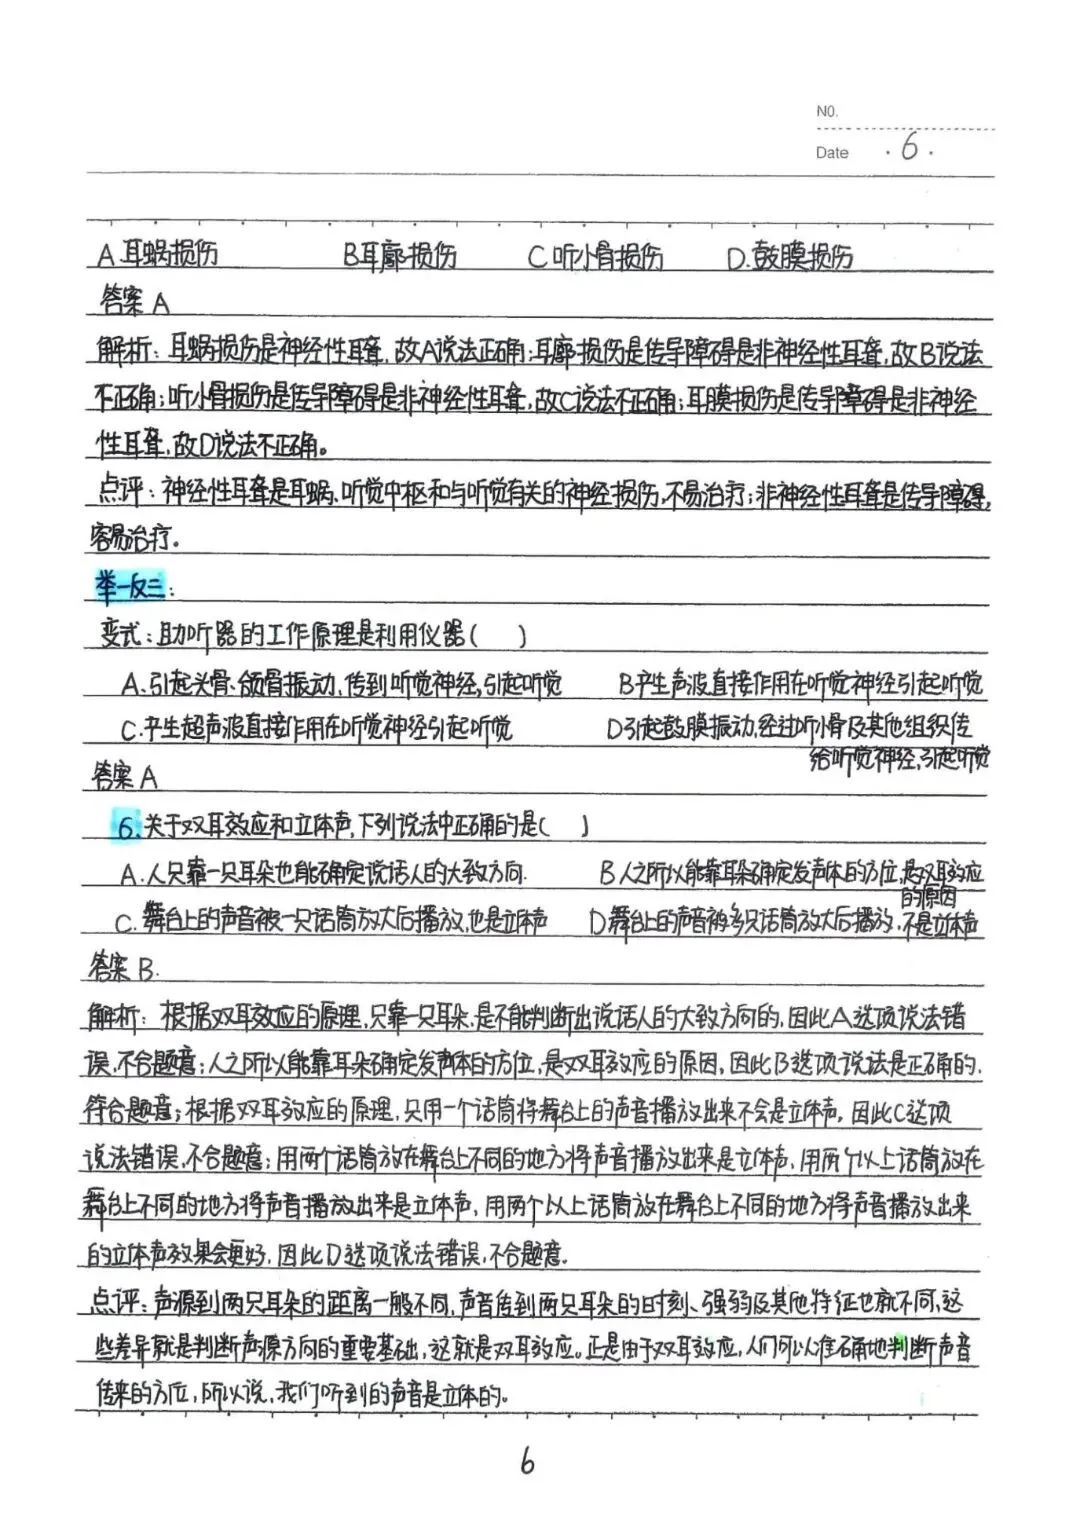 NO.
Date · 6 ·
A耳蜗损伤 B耳廓损伤 C听小骨损伤 D.鼓膜损伤
答案A
解析：耳蜗损伤是神经性耳聋,故A说法正确;耳廓损伤是传导障碍是非神经性耳聋,故B说法
不正确;听小骨损伤是传导障碍是非神经性耳聋,故C说法不正确;耳膜损伤是传导障碍是非神经
性耳聋,故D说法不正确。
点评：神经性耳聋是耳蜗、听觉中枢和与听觉有关的神经损伤,不易治疗;非神经性耳聋是传导障碍,
容易治疗.
举一反三:
变式:助听器的工作原理是利用仪器( )
A.引起头骨、颌骨振动,传到听觉神经,引起听觉 B产生声波直接作用在听觉神经引起听觉
C.产生超声波直接作用在听觉神经引起听觉 D引起鼓膜振动,经过听小骨及其他组织传
给听觉神经,引起听觉
答案A
6.关于双耳效应和立体声,下列说法中正确的是( )
A.人只靠一只耳朵也能确定说话人的大致方向. B人之所以能靠耳朵确定发声体的方位,是双耳效应
的原因
C.舞台上的声音被一只话筒放大后播放,也是立体声 D舞台上的声音被多只话筒放大后播放,不是立体声
答案B.
解析:根据双耳效应的原理,只靠一只耳朵,是不能判断出说话人的大致方向的,因此A选项说法错
误,不合题意;人之所以能靠耳朵确定发声体的方位,是双耳效应的原因,因此B选项说法是正确的,
符合题意;根据双耳效应的原理,只用一个话筒将舞台上的声音播放出来不会是立体声,因此C选项
说法错误,不合题意;用两个话筒放在舞台上不同的地方将声音播放出来是立体声,用两个以上话筒放在
舞台上不同的地方将声音播放出来是立体声,用两个以上话筒放在舞台上不同的地方将声音播放出来
的立体声效果会更好,因此D选项说法错误,不合题意.
点评:声源到两只耳朵的距离一般不同,声音传到两只耳朵的时刻、强弱及其他特征也就不同,这
些差异就是判断声源方向的重要基础,这就是双耳效应。正是由于双耳效应,人们可以准确地判断声音
传来的方位,所以说,我们听到的声音是立体的。
6